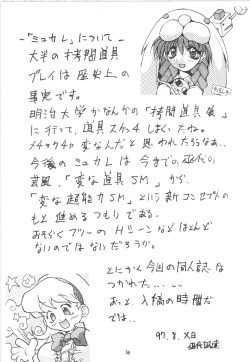 -「ミュカレ」について-
大半の拷問道具
プレイは歴史上の
事実です。
明治大学かなんかの「拷問道具展」
に行って、道具スケッチしまくったね。
メチャクチャ変なんだと思われたろうなぁ‥
今後のミュカレは今までの
芸風、「変な道具SM」から、
「変な超能力SM」という新コンセプトの
もと進めるつもりである。
おそらくブリーのHシーンなどはほとんど
ないのではないだろうか。
とにかく今回の同人誌は
つかれた‥‥
あっと、入稿の時間だ
では‥
97. 8. ×日